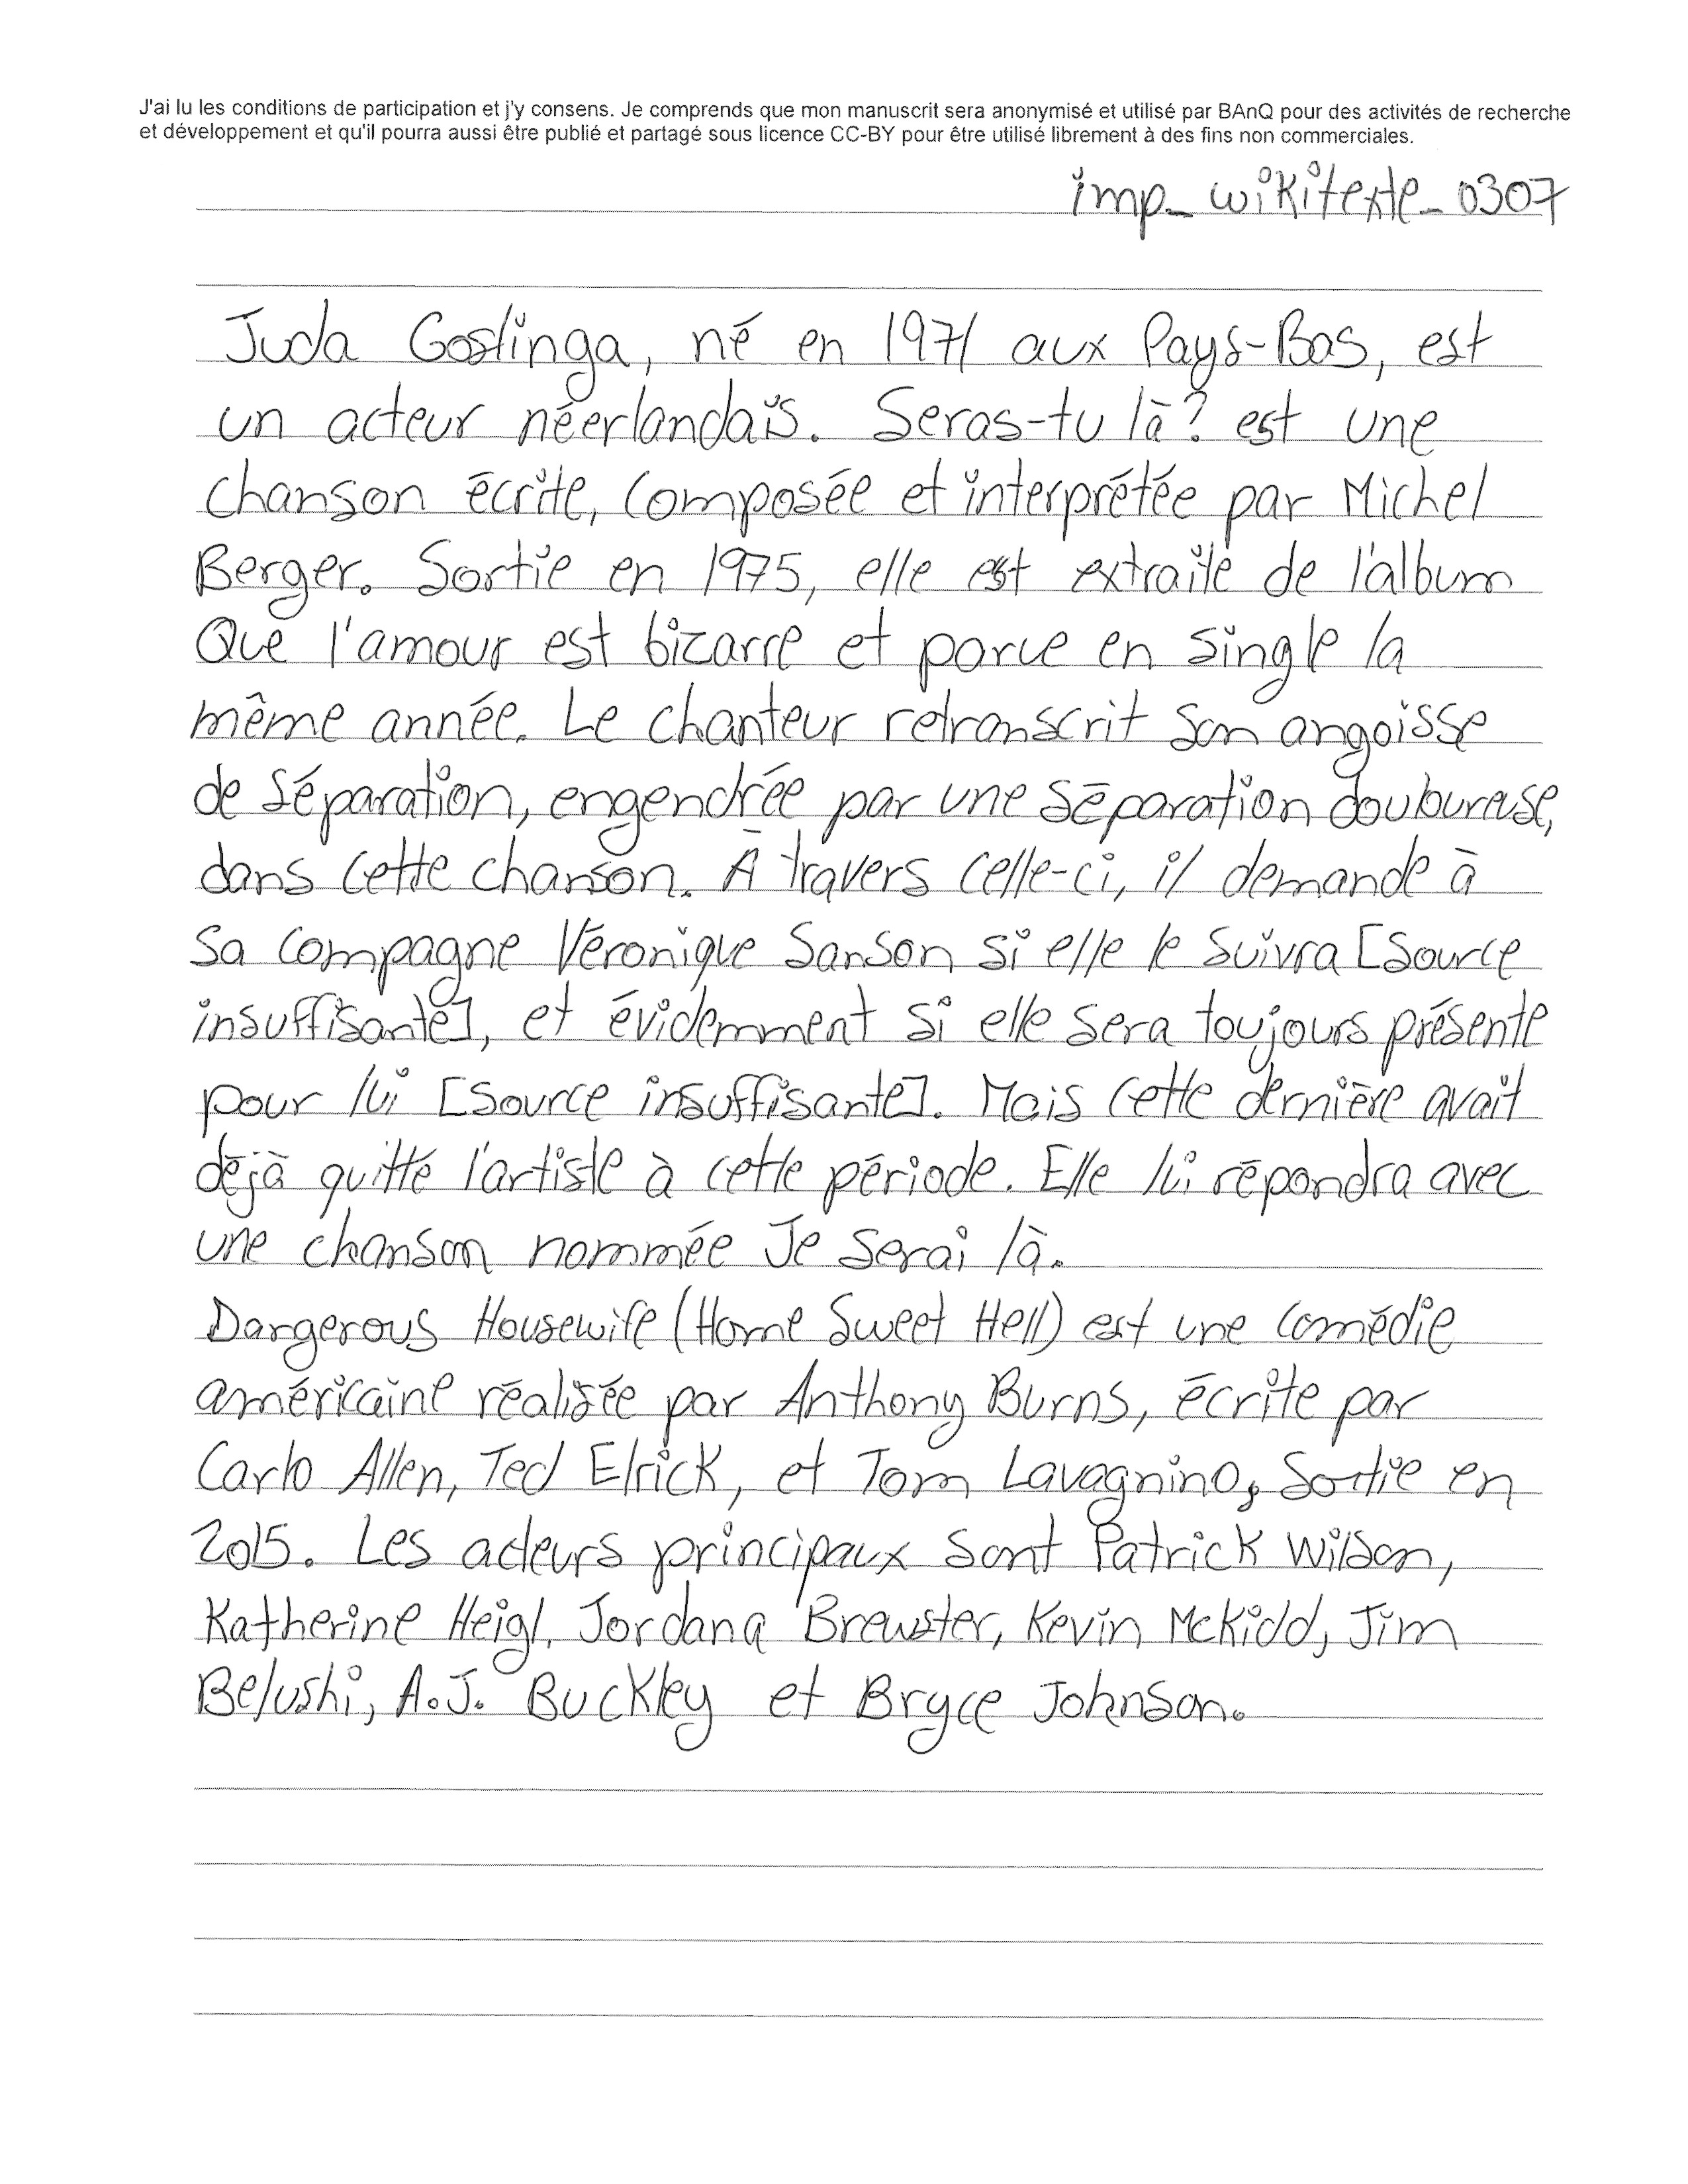 J'ai lu les conditions de participation et j'y consens. Je comprends que mon manuscrit sera anonymisé et utilisé par BAnQ pour des activités de recherche
et développement et qu'il pourra aussi être publié et partagé sous licence CC-BY pour être utilisé librement à des fins non commerciales.
imp_wikitexte_0307
Juda Goslinga, né en 1971 aux Pays-Bas, est
un acteur néerlandais. Seras-tu là? est une
chanson écrite, composée et interprétée par Michel
Berger. Sortie en 1975, elle est extraite de l'album
Que l'amour est bizarre et parue en single la
même année. Le chanteur retranscrit son angoisse
de séparation, engendrée par une séparation douloureuse,
dans cette chanson. À travers celle-ci, il demande à
sa compagne Véronique Sanson si elle le suivra [source
insuffisante], et évidemment si elle sera toujours présente
pour lui [source insuffisante]. Mais cette dernière avait
déjà quitté l'artiste à cette période. Elle lui répondra avec
une chanson nommée Je serai là.
Dangerous Housewife (Home Sweet Hell) est une comédie
américaine réalisée par Anthony Burns, écrite par
Carlo Allen, Ted Elrick, et Tom Lavagnino, sortie en
2015. Les acteurs principaux sont Patrick Wilson,
Katherine Heigl, Jordana Brewster, Kevin McKidd, Jim
Belushi, A.J. Buckley et Bryce Johnson.